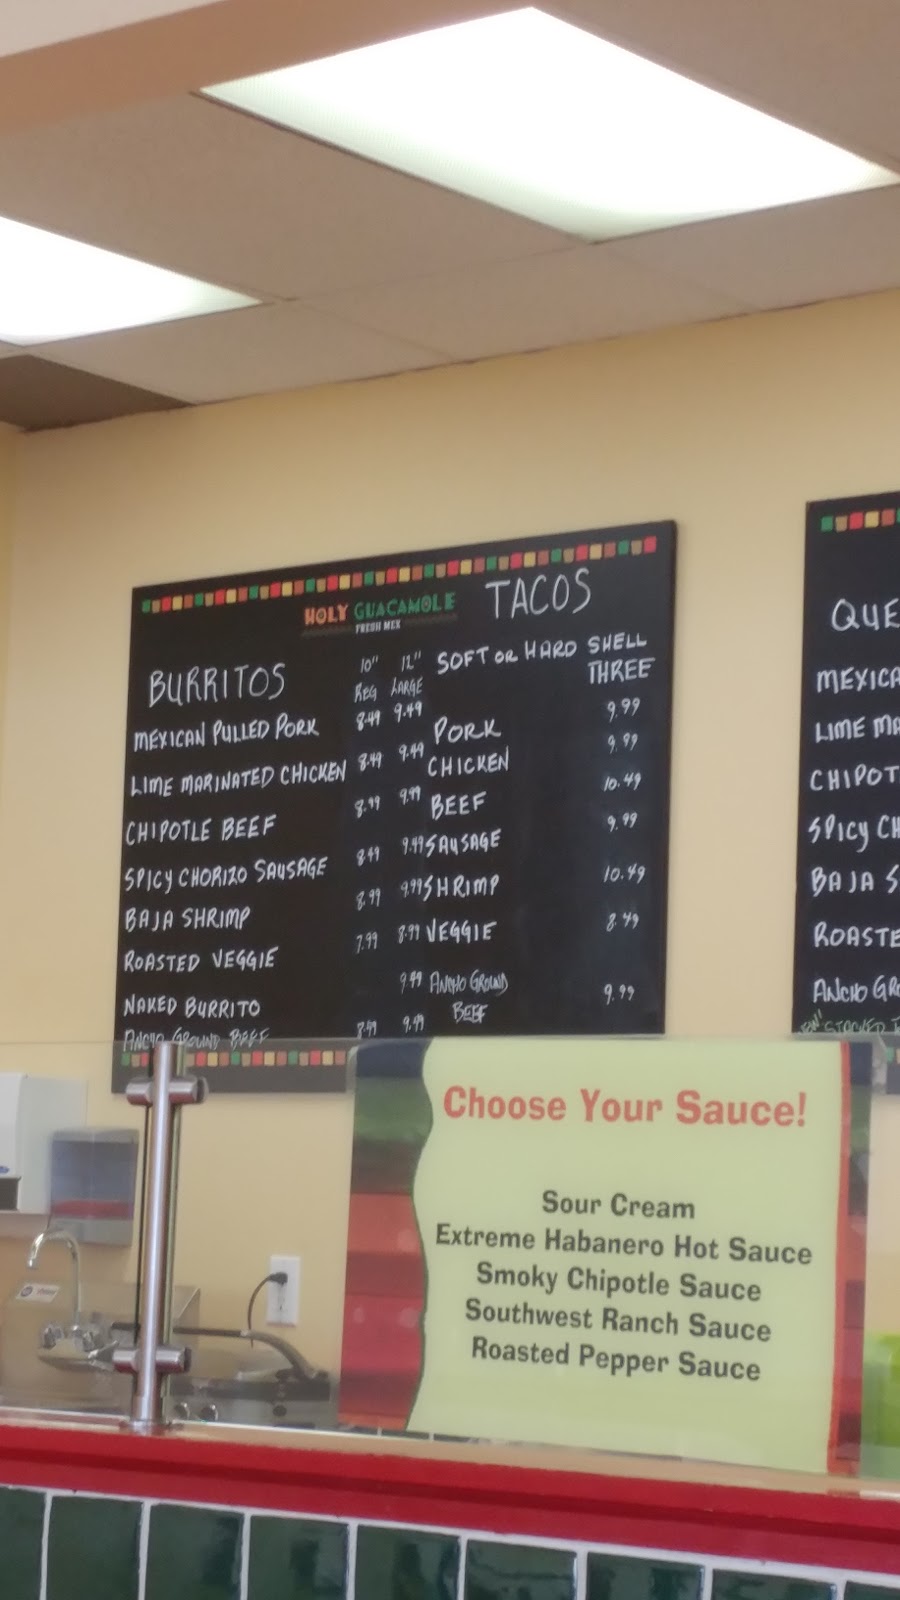 HOLY GUACAMOLE
FRESH MEX
BURRITOS
10" 12"
REG LARGE
MEXICAN PULLED PORK 8.49 9.49
LIME MARINATED CHICKEN 8.49 9.49
CHIPOTLE BEEF 8.99 9.99
SPICY CHORIZO SAUSAGE 8.49 9.49
BAJA SHRIMP 8.99 9.99
ROASTED VEGGIE 7.99 8.99
NAKED BURRITO 9.49
ANCHO GROUND BEEF 8.49 9.49
TACOS
SOFT OR HARD SHELL
THREE
PORK 9.99
CHICKEN 9.99
BEEF 10.49
SAUSAGE 9.99
SHRIMP 10.49
VEGGIE 8.49
ANCHO GROUND
BEEF 9.99
QUE
MEXICA
LIME MA
CHIPOT
SPICY CH
BAJA S
ROASTE
ANCHO GR
STACKED
Choose Your Sauce!
Sour Cream
Extreme Habanero Hot Sauce
Smoky Chipotle Sauce
Southwest Ranch Sauce
Roasted Pepper Sauce